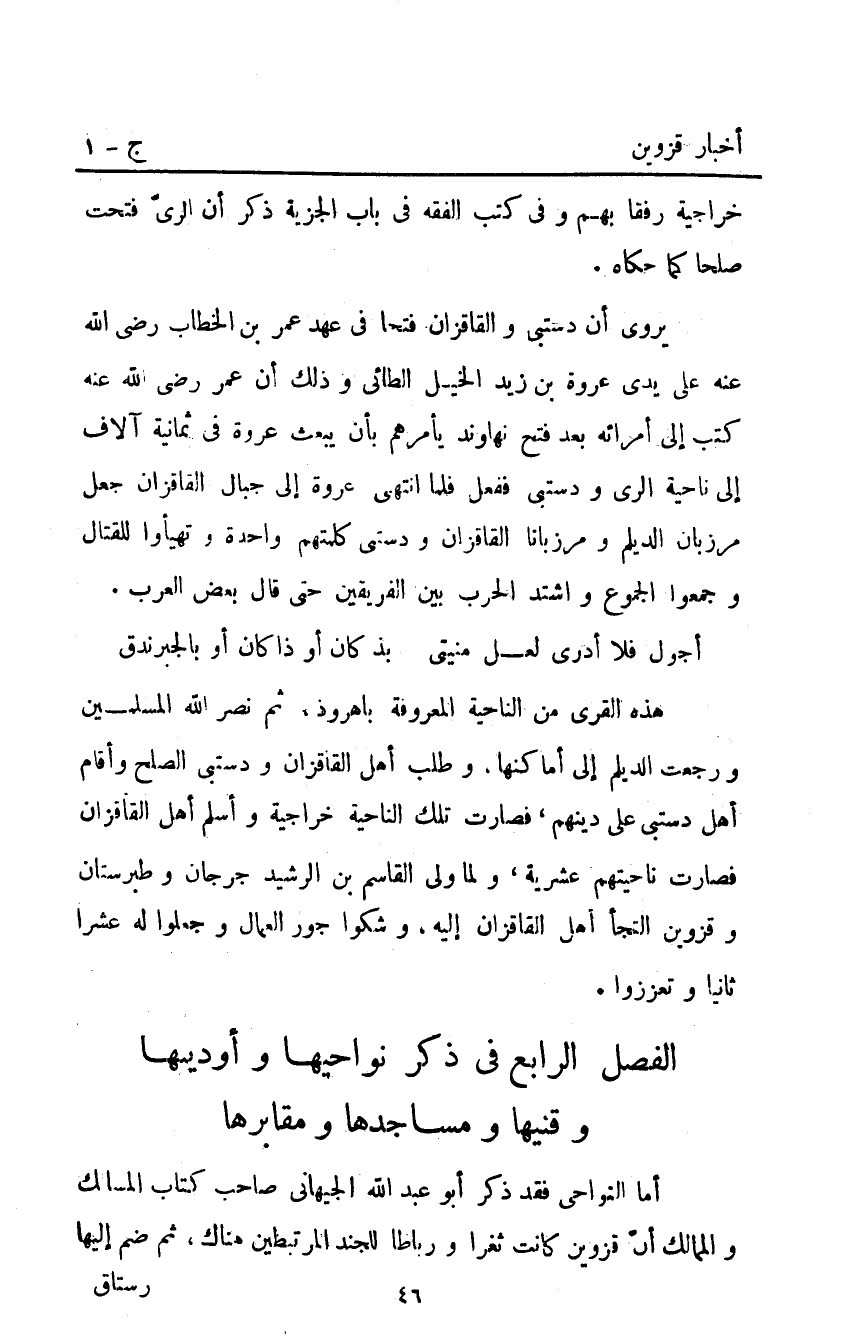 أخبار قزوين ج - ١
خراجية رفقا بهم و فى كتب الفقه فى باب الجزية ذكر أن الرىّ فتحت
صلحا كما حكاه .
يروى أن دستبى و القاقزان فتحا فى عهد عمر بن الخطاب رضى الله
عنه على يدى عروة بن زيد الخيل الطائى و ذلك أن عمر رضى الله عنه
كتب إلى أمرائه بعد فتح نهاوند يأمرهم بأن يبعث عروة فى ثمانية آلاف
إلى ناحية الرى و دستبى ففعل فلما انتهى عروة إلى جبال القاقزان جعل
مرزبان الديلم و مرزبانا القاقزان و دستبى كلمتهم واحدة و تهيأوا للقتال
و جمعوا الجموع و اشتد الحرب بين الفريقين حتى قال بعض العرب .
أجول فلا أدرى لعل منيتى بذكان أو ذاكان أو بالجبرندق
هذه القرى من الناحية المعروفة باهروذ ، ثم نصر الله المسلمين
و رجعت الديلم إلى أماكنها ، و طلب أهل القاقزان و دستبى الصلح وأقام
أهل دستبى على دينهم ، فصارت تلك الناحية خراجية و أسلم أهل القاقزان
فصارت ناحيتهم عشرية ، و لما ولى القاسم بن الرشيد جرجان و طبرستان
و قزوين التجأ أهل القاقزان إليه ، و شكوا جور العمال و جعلوا له عشرا
ثانيا و تعززوا .
الفصل الرابع فى ذكر نواحيها و أوديتها
و قنيها و مساجدها و مقابرها
أما النواحى فقد ذكر أبو عبد الله الجيهانى صاحب كتاب المسالك
و الممالك أنّ قزوين كانت ثغرا و رباطا للجند المرتبطين هناك ، ثم ضم إليها
رستاق
٤٦